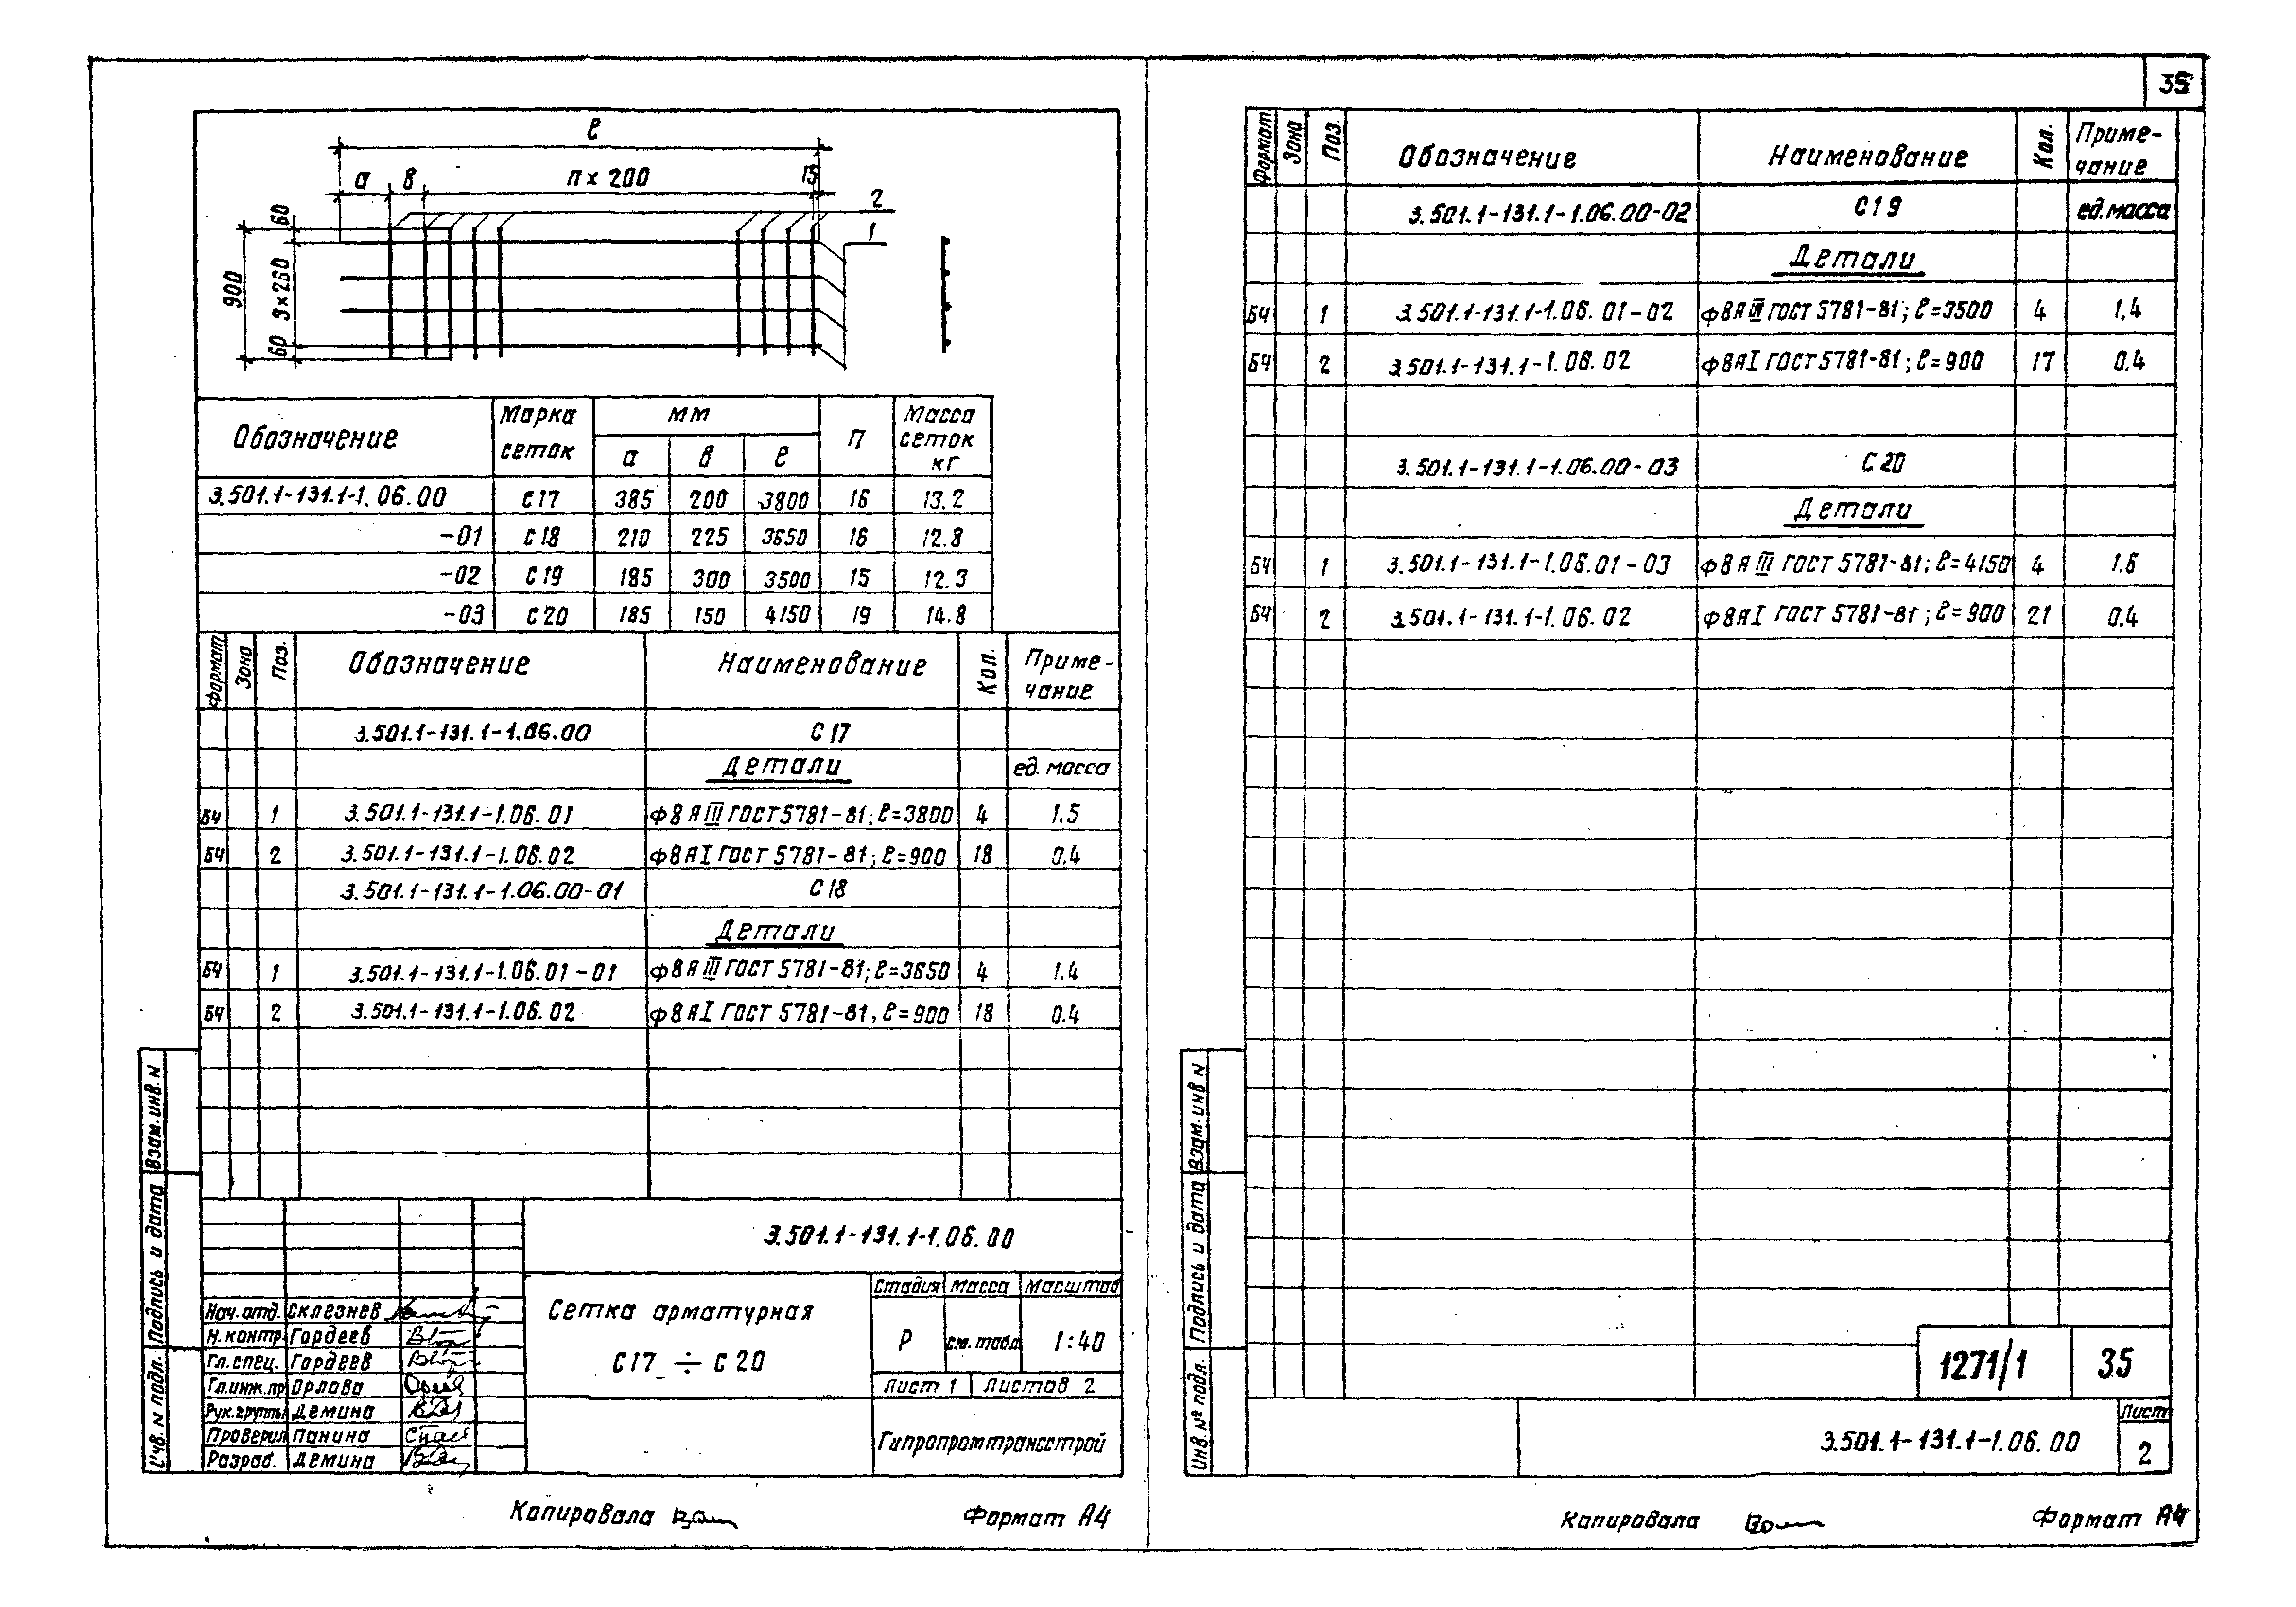 35
ℓ
а в п х 200 15
2
1
60
3×260
60
900
Обозначение Марка сеток мм п Масса сеток кг
а в ℓ
3.501.1-131.1-1.06.00 С17 385 200 3800 16 13.2
-01 С18 210 225 3650 16 12.8
-02 С19 185 300 3500 15 12.3
-03 С20 185 150 4150 19 14.8
Формат Зона Поз. Обозначение Наименование Кол. Приме-
чание
3.501.1-131.1-1.06.00 С17
Детали ед. масса
БЧ 1 3.501.1-131.1-1.06.01 ф8АIII ГОСТ 5781-81; ℓ=3800 4 1.5
БЧ 2 3.501.1-131.1-1.06.02 ф8АI ГОСТ 5781-81; ℓ=900 18 0.4
3.501.1-131.1-1.06.00-01 С18
Детали
БЧ 1 3.501.1-131.1-1.06.01-01 ф8АIII ГОСТ 5781-81; ℓ=3650 4 1.4
БЧ 2 3.501.1-131.1-1.06.02 ф8АI ГОСТ 5781-81, ℓ=900 18 0.4
Взам. инв. N
Подпись и дата
Инв. N подл.
3.501.1-131.1-1.06.00
Нач. отд. Склезнев
Н. контр. Гордеев
Гл. спец. Гордеев
Гл. инж. пр Орлова
Рук. группы Демина
Проверил Панина
Разраб. Демина
Сетка арматурная
С17 ÷ С20
Стадия Масса Масштаб
Р см. табл. 1:40
Лист 1 Листов 2
Гипропромтрансстрой
Копировала Формат А4
Формат Зона Поз. Обозначение Наименование Кол. Приме-
чание
3.501.1-131.1-1.06.00-02 С19 ед. масса
Детали
БЧ 1 3.501.1-131.1-1.06.01-02 ф8АIII ГОСТ 5781-81; ℓ=3500 4 1.4
БЧ 2 3.501.1-131.1-1.06.02 ф8АI ГОСТ 5781-81; ℓ=900 17 0.4
3.501.1-131.1-1.06.00-03 С20
Детали
БЧ 1 3.501.1-131.1-1.06.01-03 ф8АIII ГОСТ 5781-81; ℓ=4150 4 1.6
БЧ 2 3.501.1-131.1-1.06.02 ф8АI ГОСТ 5781-81; ℓ=900 21 0.4
Взам. инв N
Подпись и дата
Инв. № подл.
1271/1 35
3.501.1-131.1-1.06.00 Лист
2
Копировала Формат А4